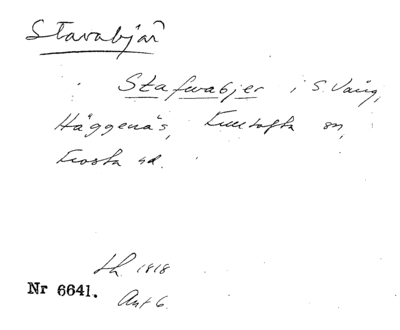 Stavabjär
Stafwabjer i S. Vång,
Häggenäs, Kulltofta sn,
Frosta hd.
Lh. 1818
Nr 6641. Akt 6